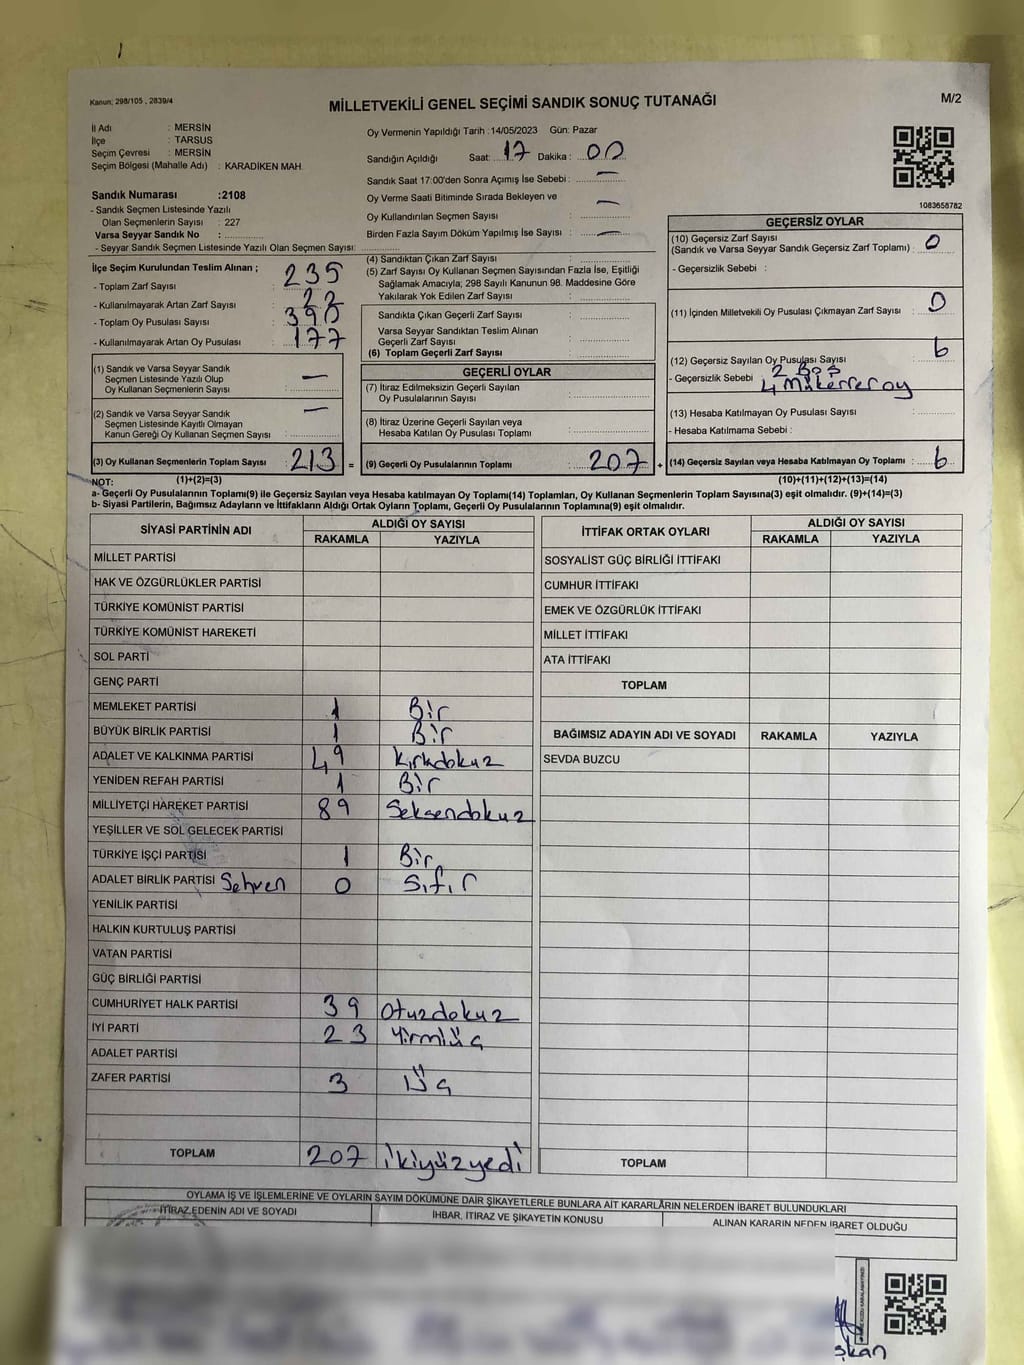 Kanun; 298/105 , 2839/4
MİLLETVEKİLİ GENEL SEÇİMİ SANDIK SONUÇ TUTANAĞI
M/2
İl Adı : MERSİN
İlçe : TARSUS
Seçim Çevresi : MERSİN
Seçim Bölgesi (Mahalle Adı) : KARADİKEN MAH.
Sandık Numarası :2108
- Sandık Seçmen Listesinde Yazılı
Olan Seçmenlerin Sayısı : 227
Varsa Seyyar Sandık No :
- Seyyar Sandık Seçmen Listesinde Yazılı Olan Seçmen Sayısı:
Oy Vermenin Yapıldığı Tarih :14/05/2023 Gün: Pazar
Sandığın Açıldığı Saat: 17 Dakika : 00
Sandık Saat 17:00'den Sonra Açımış İse Sebebi : —
Oy Verme Saati Bitiminde Sırada Bekleyen ve
Oy Kullandırılan Seçmen Sayısı : —
Birden Fazla Sayım Döküm Yapılmış İse Sayısı : —
1083658782
İlçe Seçim Kurulundan Teslim Alınan ;
- Toplam Zarf Sayısı : 235
- Kullanılmayarak Artan Zarf Sayısı : 22
- Toplam Oy Pusulası Sayısı : 390
- Kullanılmayarak Artan Oy Pusulası : 177
(1) Sandık ve Varsa Seyyar Sandık
Seçmen Listesinde Yazılı Olup
Oy Kullanan Seçmenlerin Sayısı : —
(2) Sandık ve Varsa Seyyar Sandık
Seçmen Listesinde Kayıtlı Olmayan
Kanun Gereği Oy Kullanan Seçmen Sayısı : —
(3) Oy Kullanan Seçmenlerin Toplam Sayısı : 213 =
(1)+(2)=(3)
(4) Sandıktan Çıkan Zarf Sayısı :
(5) Zarf Sayısı Oy Kullanan Seçmen Sayısından Fazla İse, Eşitliği
Sağlamak Amacıyla; 298 Sayılı Kanunun 98. Maddesine Göre
Yakılarak Yok Edilen Zarf Sayısı :
Sandıkta Çıkan Geçerli Zarf Sayısı :
Varsa Seyyar Sandıktan Teslim Alınan
Geçerli Zarf Sayısı :
(6) Toplam Geçerli Zarf Sayısı :
GEÇERLİ OYLAR
(7) İtiraz Edilmeksizin Geçerli Sayılan
Oy Pusulalarının Sayısı :
(8) İtiraz Üzerine Geçerli Sayılan veya
Hesaba Katılan Oy Pusulası Toplamı :
(9) Geçerli Oy Pusulalarının Toplamı : 207 +
GEÇERSİZ OYLAR
(10) Geçersiz Zarf Sayısı
(Sandık ve Varsa Seyyar Sandık Geçersiz Zarf Toplamı) : 0
- Geçersizlik Sebebi :
(11) İçinden Milletvekili Oy Pusulası Çıkmayan Zarf Sayısı : 0
(12) Geçersiz Sayılan Oy Pusulası Sayısı 6
- Geçersizlik Sebebi 2 Boş
4 Mükerrer oy
(13) Hesaba Katılmayan Oy Pusulası Sayısı :
- Hesaba Katılmama Sebebi :
(14) Geçersiz Sayılan veya Hesaba Katılmayan Oy Toplamı : 6
(10)+(11)+(12)+(13)=(14)
NOT:
a- Geçerli Oy Pusulalarının Toplamı(9) ile Geçersiz Sayılan veya Hesaba katılmayan Oy Toplamı(14) Toplamları, Oy Kullanan Seçmenlerin Toplam Sayısına(3) eşit olmalıdır. (9)+(14)=(3)
b- Siyasi Partilerin, Bağımsız Adayların ve İttifakların Aldığı Ortak Oyların Toplamı, Geçerli Oy Pusulalarının Toplamına(9) eşit olmalıdır.
SİYASİ PARTİNİN ADI ALDIĞI OY SAYISI
RAKAMLA YAZIYLA
MİLLET PARTİSİ
HAK VE ÖZGÜRLÜKLER PARTİSİ
TÜRKİYE KOMÜNİST PARTİSİ
TÜRKİYE KOMÜNİST HAREKETİ
SOL PARTİ
GENÇ PARTİ
MEMLEKET PARTİSİ 1 Bir
BÜYÜK BİRLİK PARTİSİ 1 Bir
ADALET VE KALKINMA PARTİSİ 49 Kırkdokuz
YENİDEN REFAH PARTİSİ 1 Bir
MİLLİYETÇİ HAREKET PARTİSİ 89 Seksendokuz
YEŞİLLER VE SOL GELECEK PARTİSİ
TÜRKİYE İŞÇİ PARTİSİ 1 Bir
ADALET BİRLİK PARTİSİ Sehven 0 Sıfır
YENİLİK PARTİSİ
HALKIN KURTULUŞ PARTİSİ
VATAN PARTİSİ
GÜÇ BİRLİĞİ PARTİSİ
CUMHURİYET HALK PARTİSİ 39 Otuzdokuz
İYİ PARTİ 23 Yirmiüç
ADALET PARTİSİ
ZAFER PARTİSİ 3 Üç
TOPLAM 207 ikiyüzyedi
İTTİFAK ORTAK OYLARI ALDIĞI OY SAYISI
RAKAMLA YAZIYLA
SOSYALİST GÜÇ BİRLİĞİ İTTİFAKI
CUMHUR İTTİFAKI
EMEK VE ÖZGÜRLÜK İTTİFAKI
MİLLET İTTİFAKI
ATA İTTİFAKI
TOPLAM
BAĞIMSIZ ADAYIN ADI VE SOYADI RAKAMLA YAZIYLA
SEVDA BUZCU
TOPLAM
OYLAMA İŞ VE İŞLEMLERİNE VE OYLARIN SAYIM DÖKÜMÜNE DAİR ŞİKAYETLERLE BUNLARA AİT KARARLARIN NELERDEN İBARET BULUNDUKLARI
İTİRAZ EDENİN ADI VE SOYADI İHBAR, İTİRAZ VE ŞİKAYETİN KONUSU ALINAN KARARIN NEDEN İBARET OLDUĞU